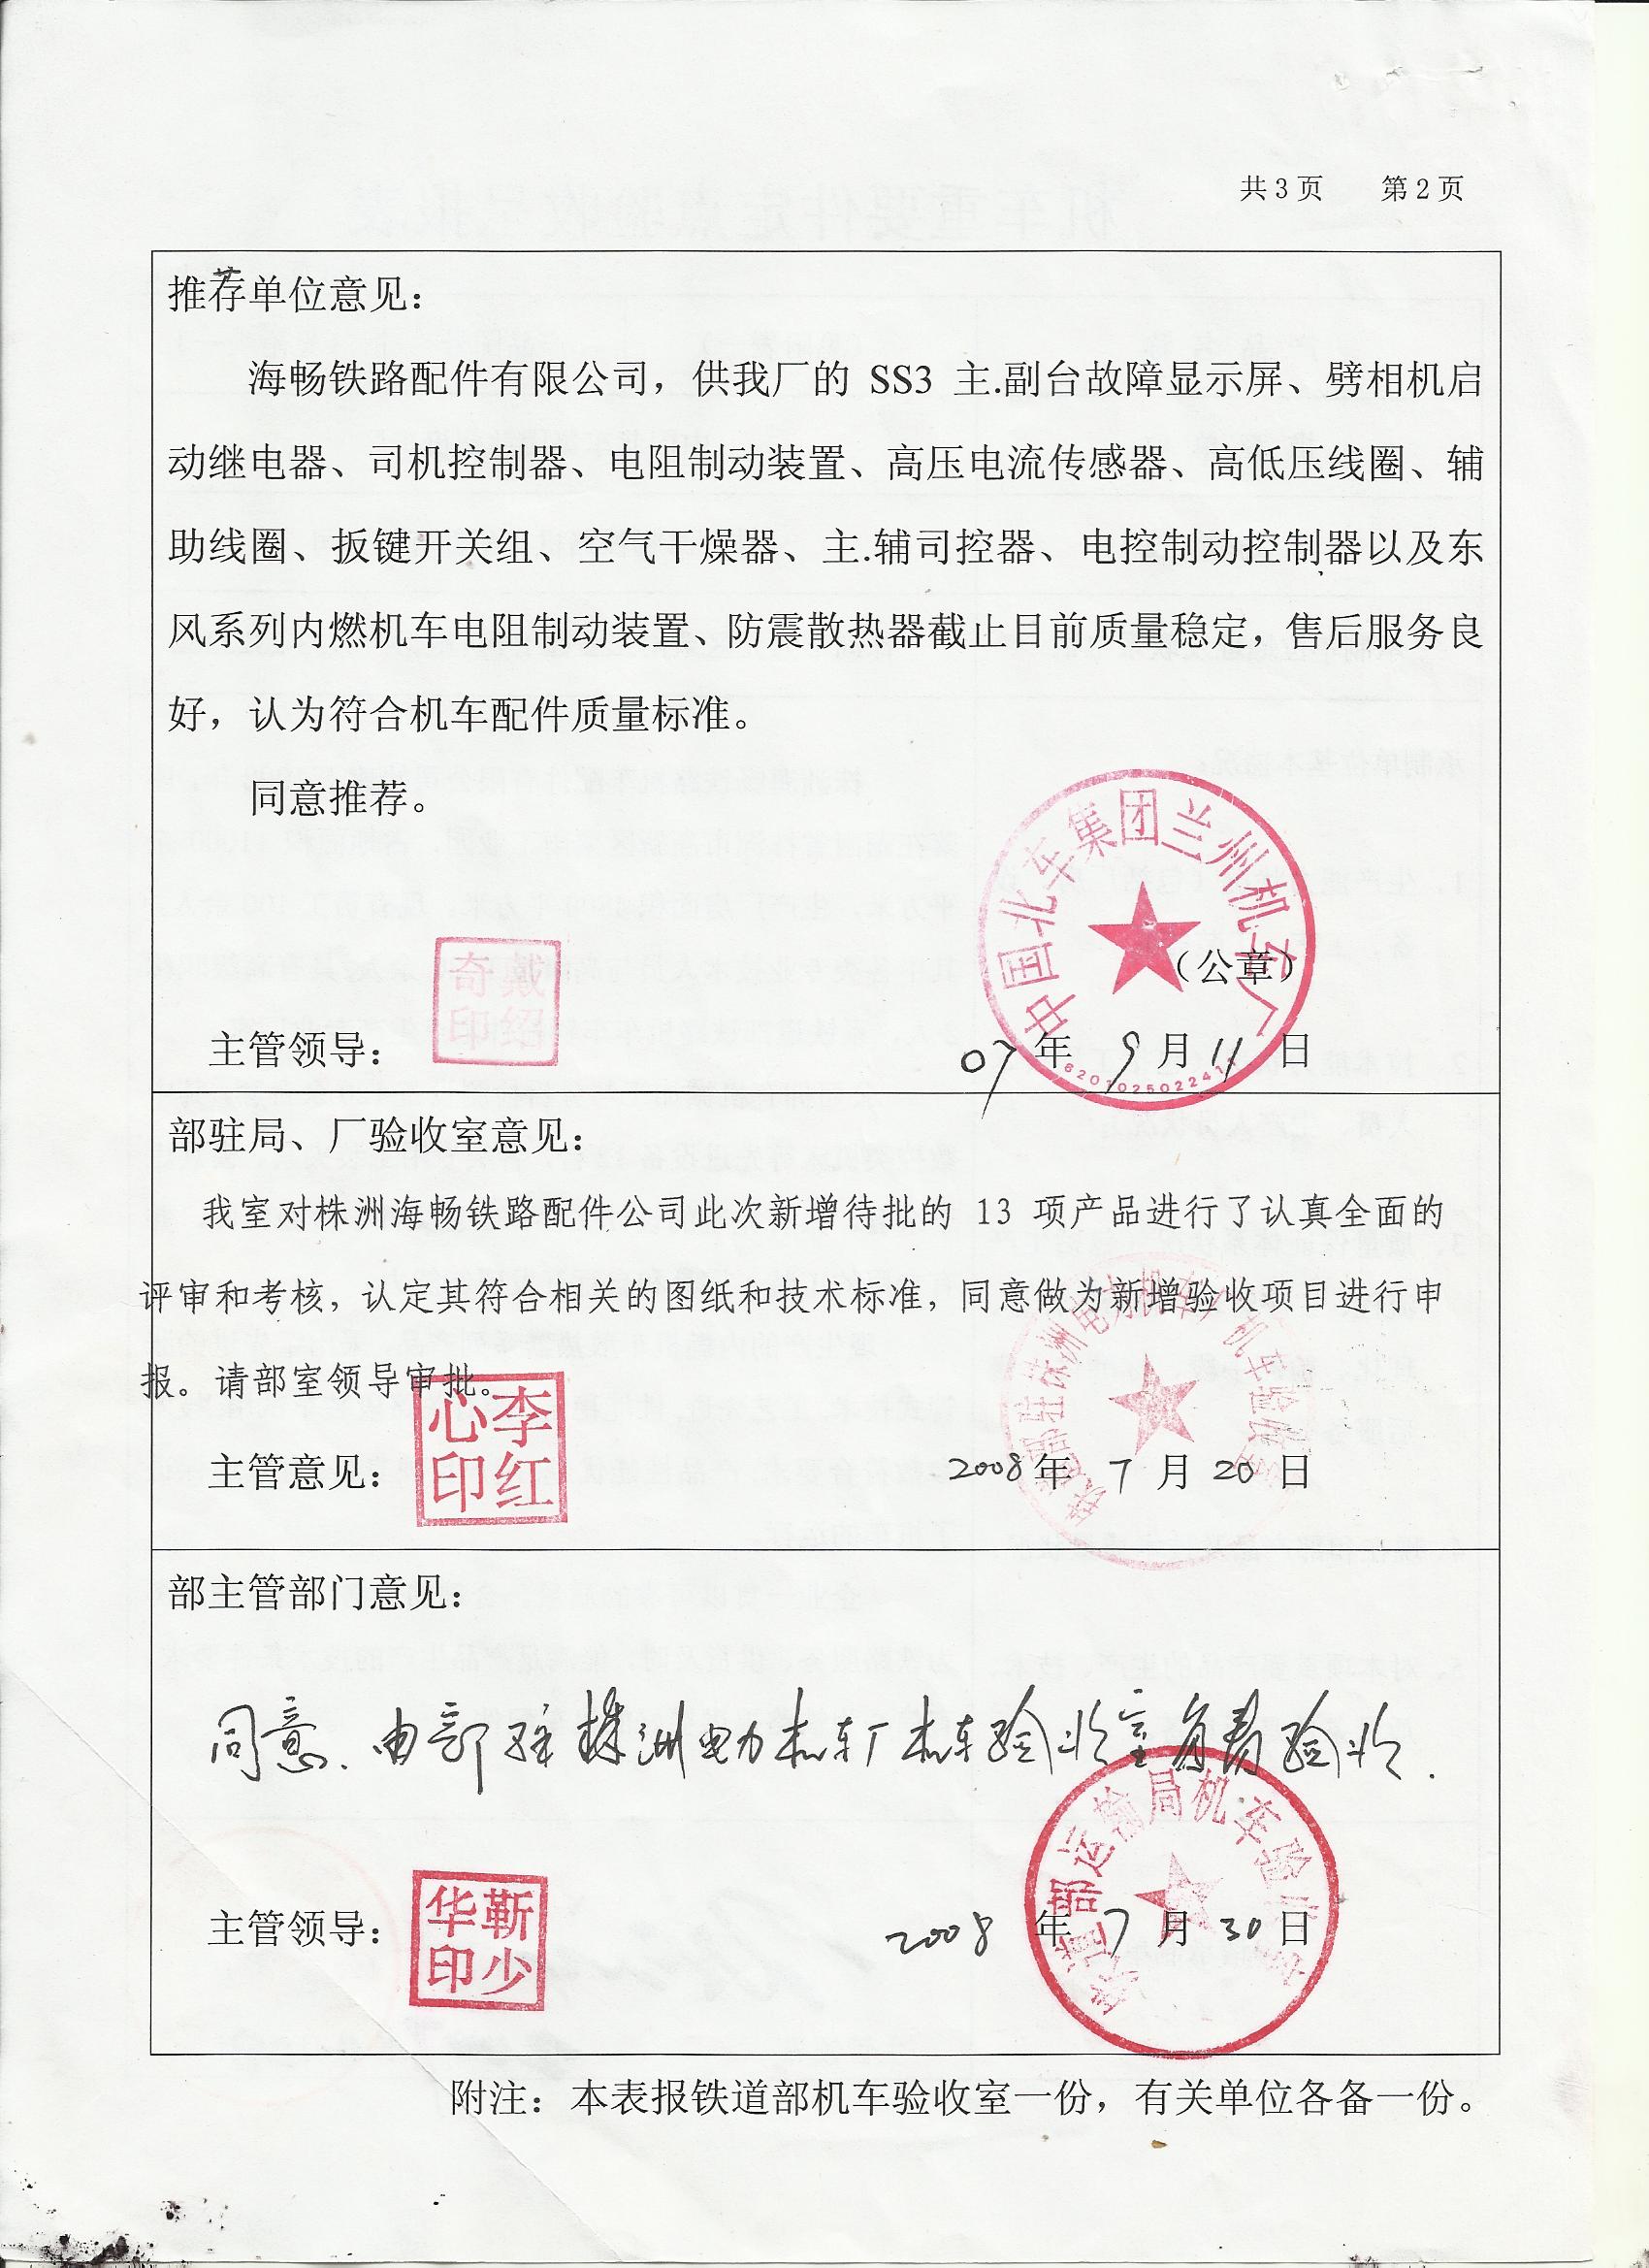 共3页 第2页
推荐单位意见：
海畅铁路配件有限公司，供我厂的 SS3 主.副台故障显示屏、劈相机启
动继电器、司机控制器、电阻制动装置、高压电流传感器、高低压线圈、辅
助线圈、扳键开关组、空气干燥器、主.辅司控器、电控制动控制器以及东
风系列内燃机车电阻制动装置、防震散热器截止目前质量稳定，售后服务良
好，认为符合机车配件质量标准。
同意推荐。
中国北车集团兰州机车厂
（公章）
戴绍奇印
主管领导：
07年9月11日
部驻局、厂验收室意见：
我室对株洲海畅铁路配件公司此次新增待批的 13 项产品进行了认真全面的
评审和考核，认定其符合相关的图纸和技术标准，同意做为新增验收项目进行申
报。请部室领导审批。
李红心印
铁道部驻株洲电力机车厂机车验收室
主管意见：
2008年7月20日
部主管部门意见：
同意.由部驻株洲电力机车厂机车验收室负责验收.
铁道部运输局机车验
靳少华印
主管领导：
2008年7月30日
附注：本表报铁道部机车验收室一份，有关单位各备一份。